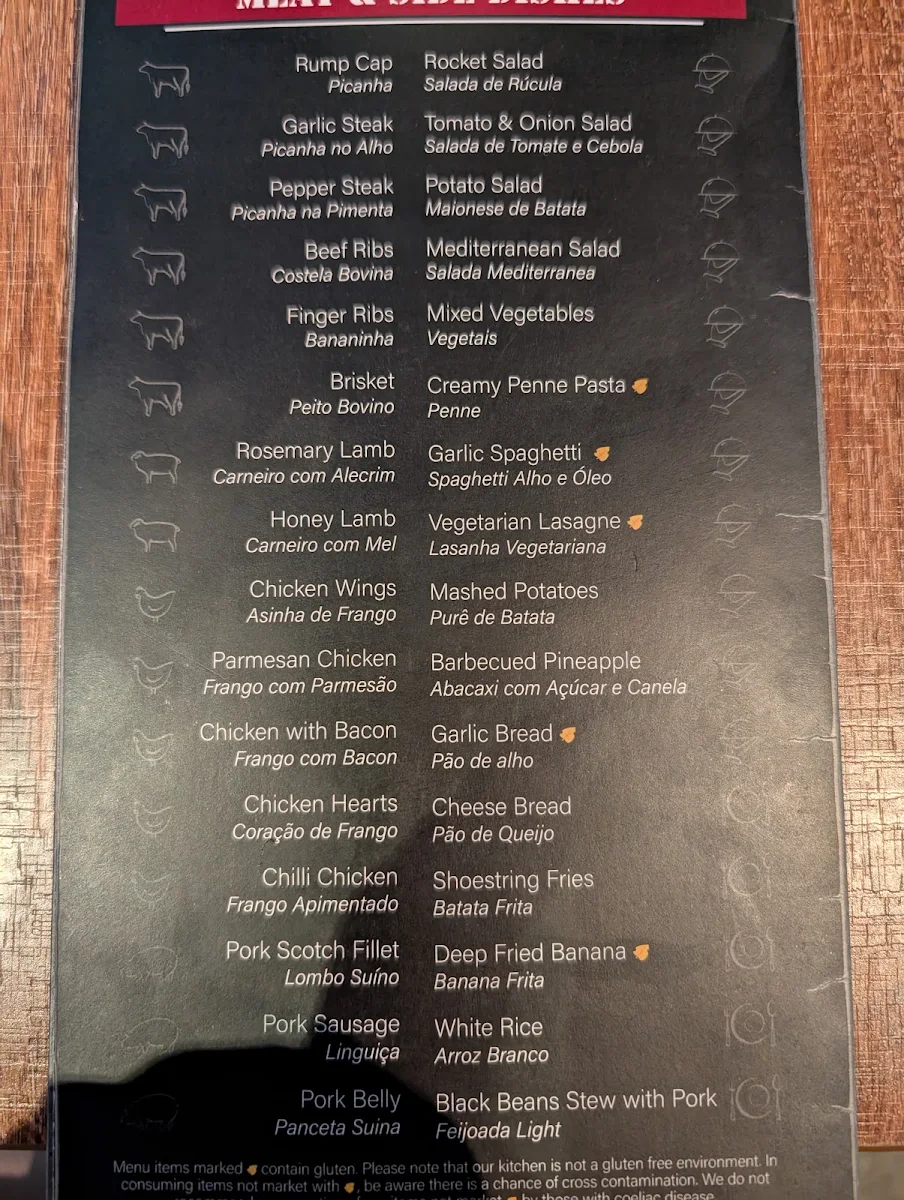 MEAT & SIDE DISHES
Rump Cap
Picanha
Garlic Steak
Picanha no Alho
Pepper Steak
Picanha na Pimenta
Beef Ribs
Costela Bovina
Finger Ribs
Bananinha
Brisket
Peito Bovino
Rosemary Lamb
Carneiro com Alecrim
Honey Lamb
Carneiro com Mel
Chicken Wings
Asinha de Frango
Parmesan Chicken
Frango com Parmesão
Chicken with Bacon
Frango com Bacon
Chicken Hearts
Coração de Frango
Chilli Chicken
Frango Apimentado
Pork Scotch Fillet
Lombo Suíno
Pork Sausage
Linguiça
Pork Belly
Panceta Suina
Rocket Salad
Salada de Rúcula
Tomato & Onion Salad
Salada de Tomate e Cebola
Potato Salad
Maionese de Batata
Mediterranean Salad
Salada Mediterranea
Mixed Vegetables
Vegetais
Creamy Penne Pasta
Penne
Garlic Spaghetti
Spaghetti Alho e Óleo
Vegetarian Lasagne
Lasanha Vegetariana
Mashed Potatoes
Purê de Batata
Barbecued Pineapple
Abacaxi com Açúcar e Canela
Garlic Bread
Pão de alho
Cheese Bread
Pão de Queijo
Shoestring Fries
Batata Frita
Deep Fried Banana
Banana Frita
White Rice
Arroz Branco
Black Beans Stew with Pork
Feijoada Light
Menu items marked contain gluten. Please note that our kitchen is not a gluten free environment. In
consuming items not market with , be aware there is a chance of cross contamination. We do not
items not market by those with coeliac disease